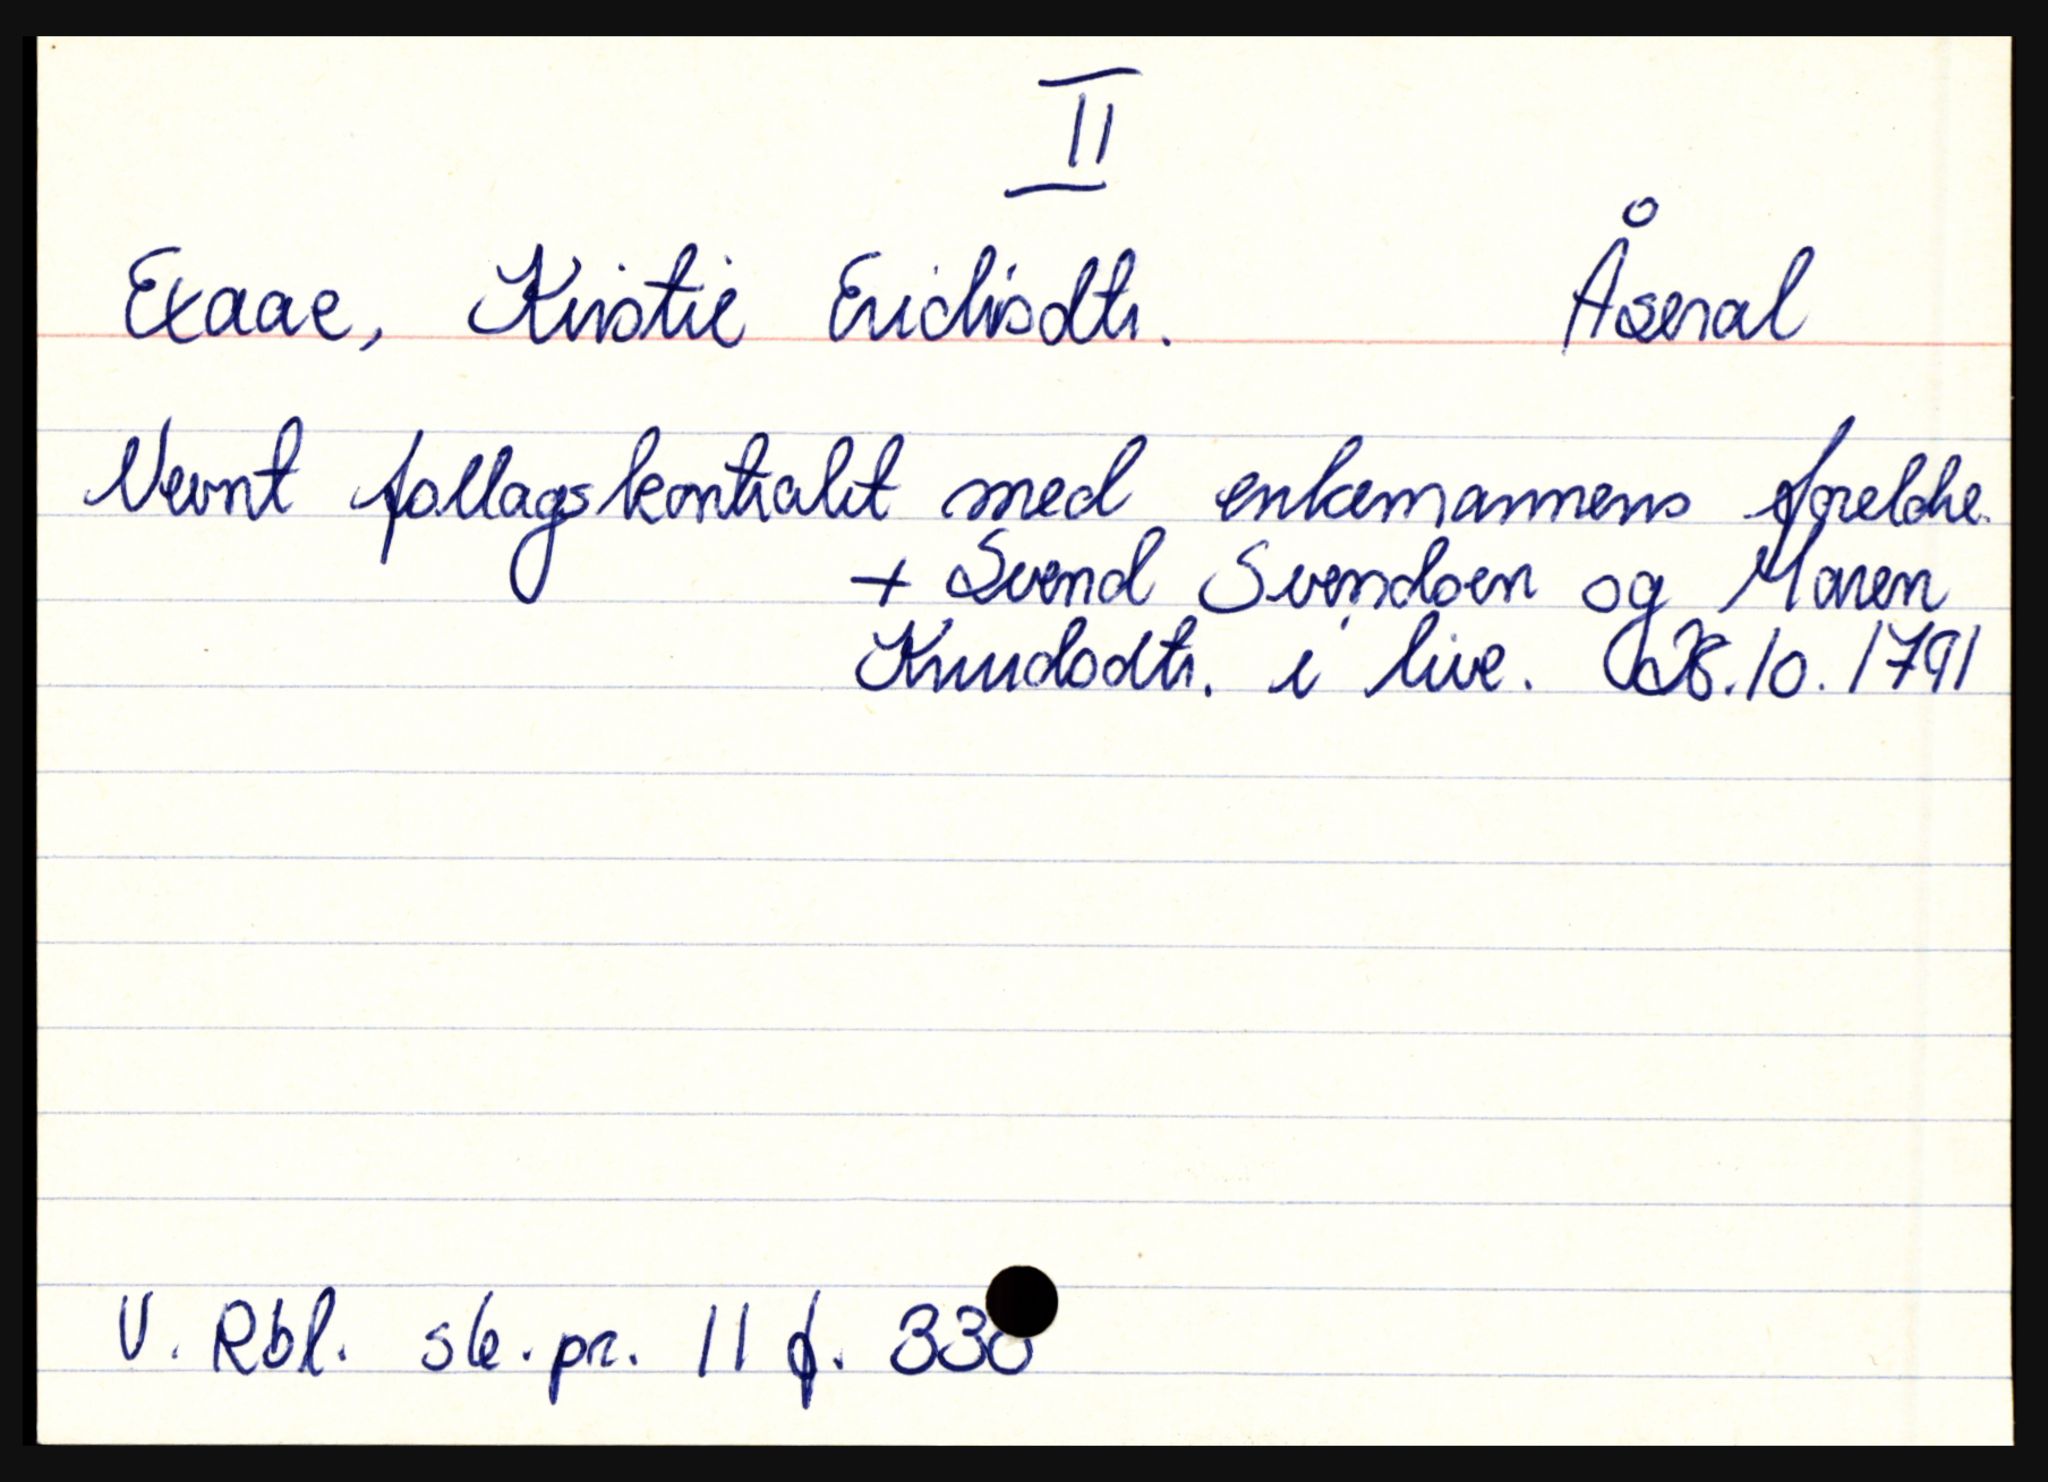 II
Exaae, Kirstie Erichsdtr. Åseral
Nevnt follagskontrakt med enkemannens foreldre
+ Svend Svendsen og Maren
Knudsdtr. i live. 28.10.1791
V. Rbl. sk.pr. 11 f.